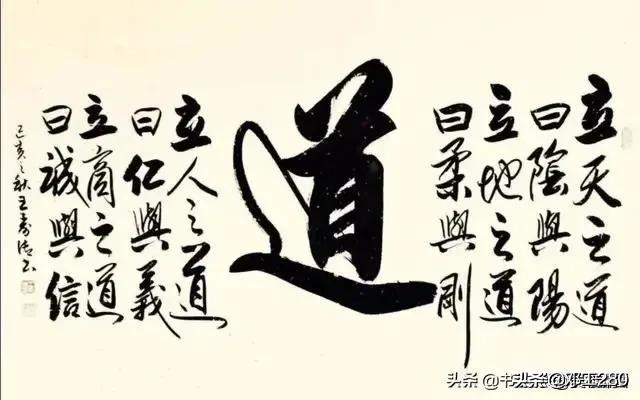 立天之道
曰陰與陽
立地之道
曰柔與剛
道
立人之道
曰仁與義
立商之道
曰誠與信
己亥之秋王书
头条 @书
头条 @280